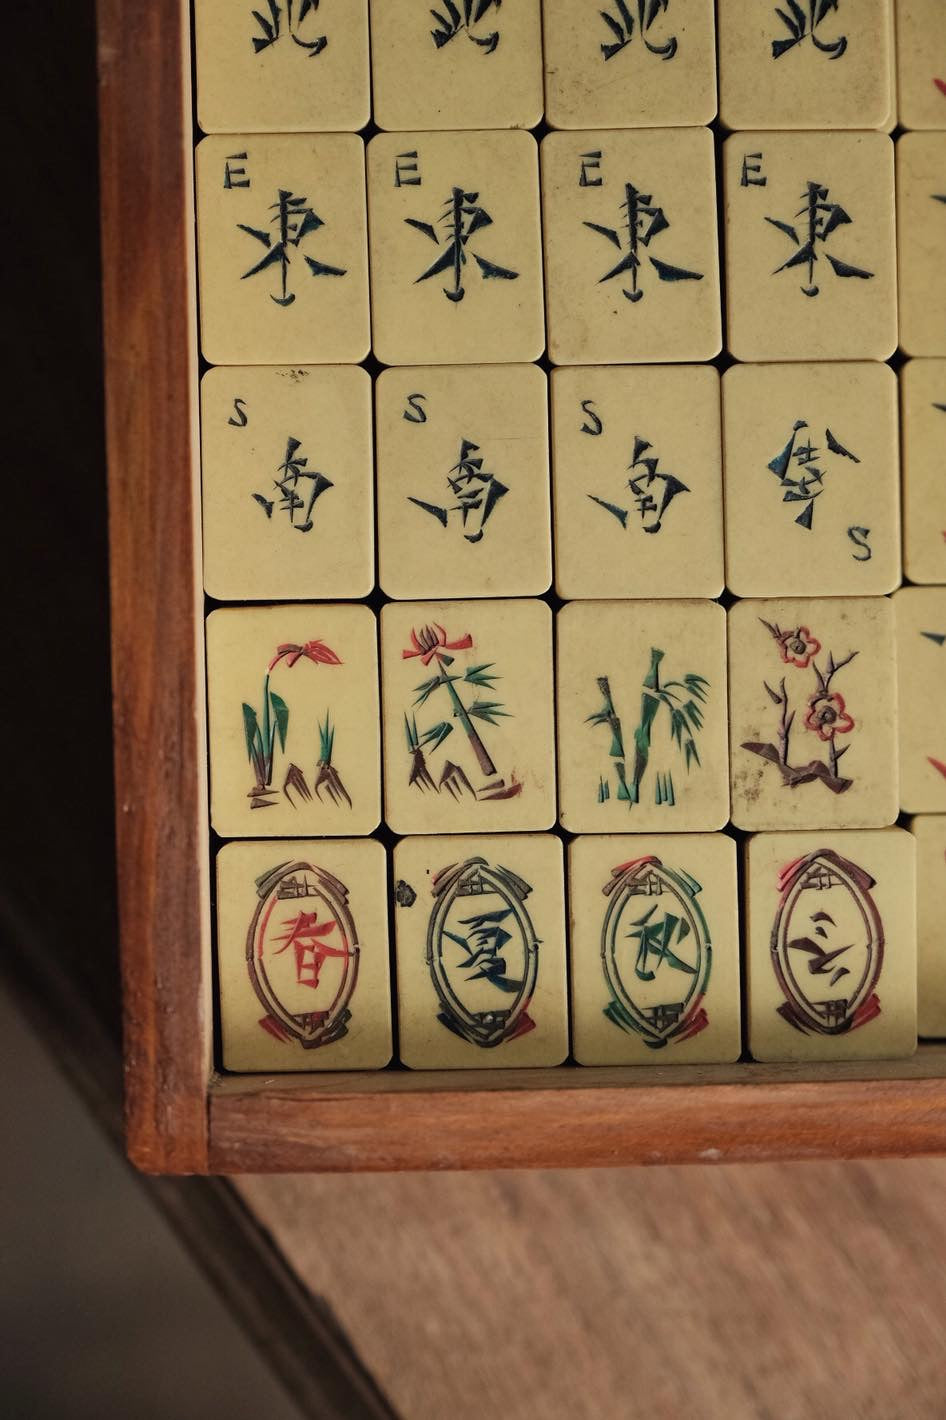 北 北 北 北
E E E E
東 東 東 東
S S S
南 南 南 南
S
春 夏 秋 冬